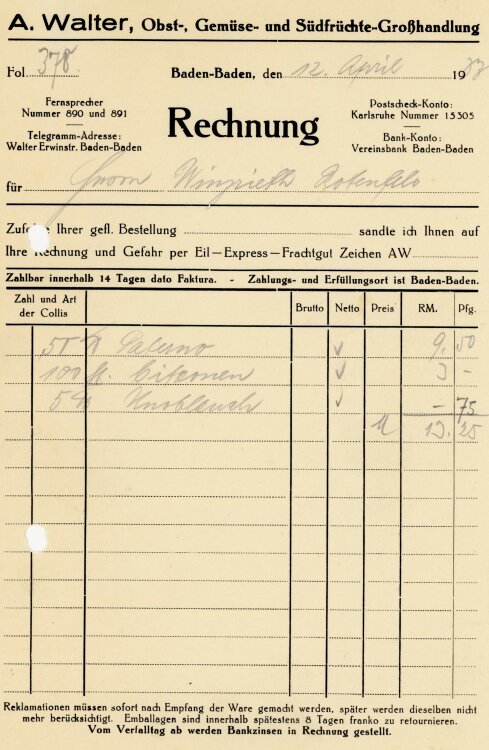 A. Walter, Obst-, Gemüse- und Südfrüchte-Großhandlung
Fol. 378
Baden-Baden, den 12. April 1933
Fernsprecher
Nummer 890 und 891
Telegramm-Adresse:
Walter Erwinstr. Baden-Baden
Rechnung
Postscheck-Konto:
Karlsruhe Nummer 15305
Bank-Konto:
Vereinsbank Baden-Baden
für Herrn Rotenfels
Zufolge Ihrer gefl. Bestellung sandte ich Ihnen auf
Ihre Rechnung und Gefahr per Eil—Express—Frachtgut Zeichen AW
Zahlbar innerhalb 14 Tagen dato Faktura. - Zahlungs- und Erfüllungsort ist Baden-Baden.
Zahl und Art der Collis Brutto Netto Preis RM. Pfg.
Palerno 9. 50
100 St. Citronen 3 -
5 ℔ Knoblauch - 75
M 13. 25
Reklamationen müssen sofort nach Empfang der Ware gemacht werden, später werden dieselben nicht
mehr berücksichtigt. Emballagen sind innerhalb spätestens 8 Tagen franko zu retournieren.
Vom Verfalltag ab werden Bankzinsen in Rechnung gestellt.